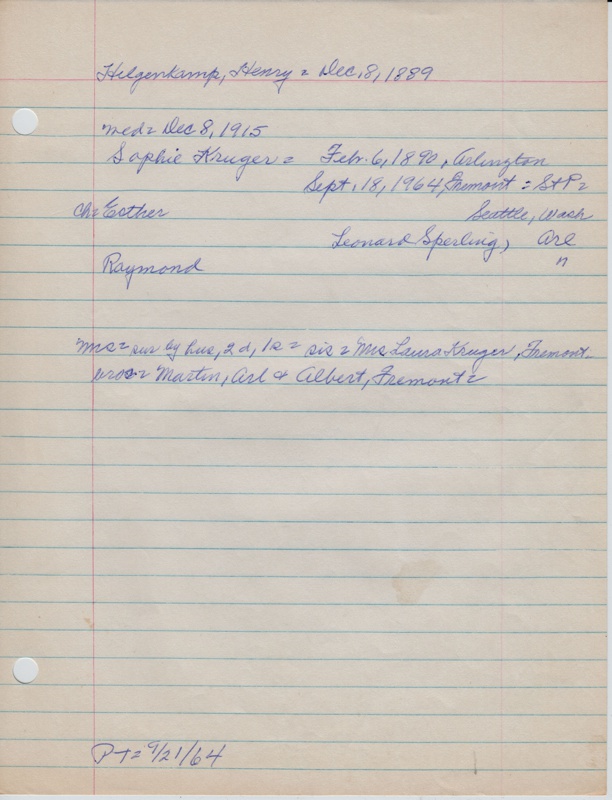 Hilgenkamp, Henry = Dec. 8, 1889
med= Dec 8, 1915
Sophie Kruger = Feb. 6, 1890, Arlington
Sept. 18, 1964, Fremont = St P=
Ch= Esther Seattle, Wash
Leonard Sperling, Arl
Raymond "
Mrs= sur by hus, 2 d, 1s = sis = Mrs Laura Kruger, Fremont-
bros= Martin, Arl & Albert, Fremont=
P-T= 9/21/64